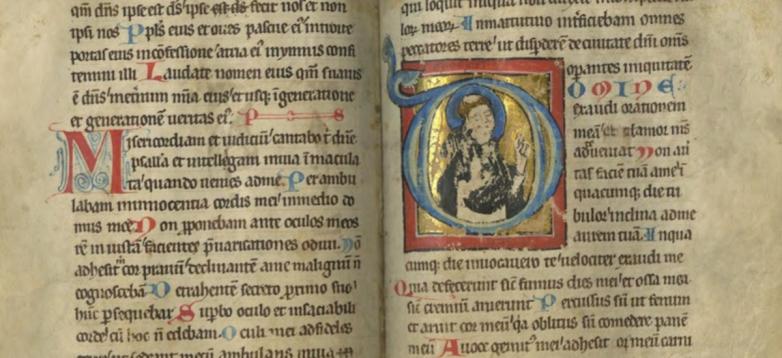 qm̄ dn̄s ipse est ds̄ ipse fecit nos et non
ipsi nos Ppl̄s eius et oues pascue ei introite
portas eius in confessione atria ei in ymnis confi
temini illi Laudate nomen eius qm̄ suauis
ē dn̄s in etnum mīa eius et usq; ī generatione
et generationem ueritas ei. P S
Misericordiam et iudiciū cantabo t' dn̄e
psallā et intellegam in uia īmacula
ta quando uenies ad me. Perambu
labam in innocentia cordis mei in medio do
mus mee Non ꝓponebam ante oculos meos
rē in iustā facientes p̄uaricationes odiui. No
adhesit m̄ cor prauū declinantē a me malignū n̄
cognoscebā Detrahentē secreto ꝓximo suo
hūc ꝑsequebar Supbo oculo et insaciabili
corde cū hoc n̄ edebam. Oculi mei ad fideles
ut sedeant mecū ambulans in uia
qui loquit iniqua non
lor meor. In matutino int̄ficiebam omnes
peccatores terre ut disꝑderē de ciuitate dn̄i om̄s
oꝑantes iniquitatē.
DOMINE
exaudi orationem
meā et clamor ms̄
ad te ueniat Non au
tas faciē tuā a me ī
quacumq; die tri
bulor inclina ad me
aurem tuā. In qua
cumq; die inuocauero te uelociter exaudi me
Quia defecerunt sic̄ fumus dies mei et ossa mea
sic̄ cremiū aruerunt Percussus sū ut fenum
et aruit cor meū qa oblitus sū comedere panē
meū A uoce gemit' mei adhesit os meū carni